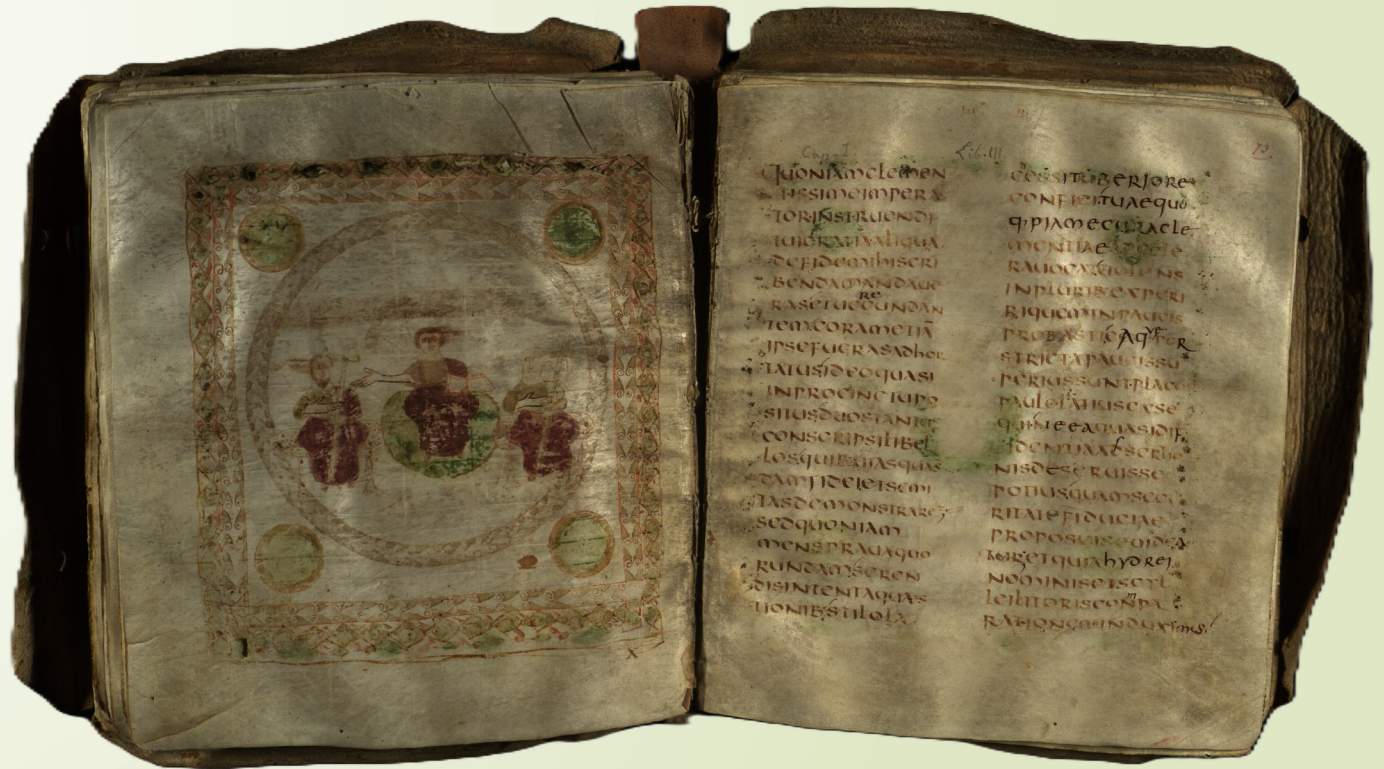 Cap. I.
Lib. III.
QUONIAMCLEMEN
TISSIMEIMPERA
TORINSTRUENDI
TUIGRATIAALIQUA
DEFIDEMIHISCRI
BENDAMANDAUE
RASETUERECUNDAN
TEMCORAMETIĀ
IPSEFUERASADHOR
TATUSIDEOQUASI
INPROCINCTUPO
SITUSDUOSTANTŪ
CONSCRIPSILIBEL
LOSQUIBUIASQUAS
DAMFIDEIETSEMI
TASDEMONSTRARĒ
SEDQUONIAM
MENSPRAUAQUO
RUNDAMSEREN
DISINTENTAQUAES
TIONIBSTILOLA
CESSITUBERIORE
CONFICITUAEQUO
Q;PIAMECURACLE
MENTIAE
INPLURIBEXPERI
RIQUEMINPAUCIS
PROBASTIEAQUEPER
STRICTAPAUCISSU
PERIUSSUNTPLACET
PAULOLATIUSEXSE
QUINEEAQUASIDIF
FIDENTIAADSERTIO
NISDESERUISSE
POTIUSQUAMSECU
RITATEFIDUCIAE
PROPOSUISSEUIDEA
MURETQUIAHYDREI
NOMINISETSCYL
LEILITORISCOMPA
RATIONEMINDUXIMUS